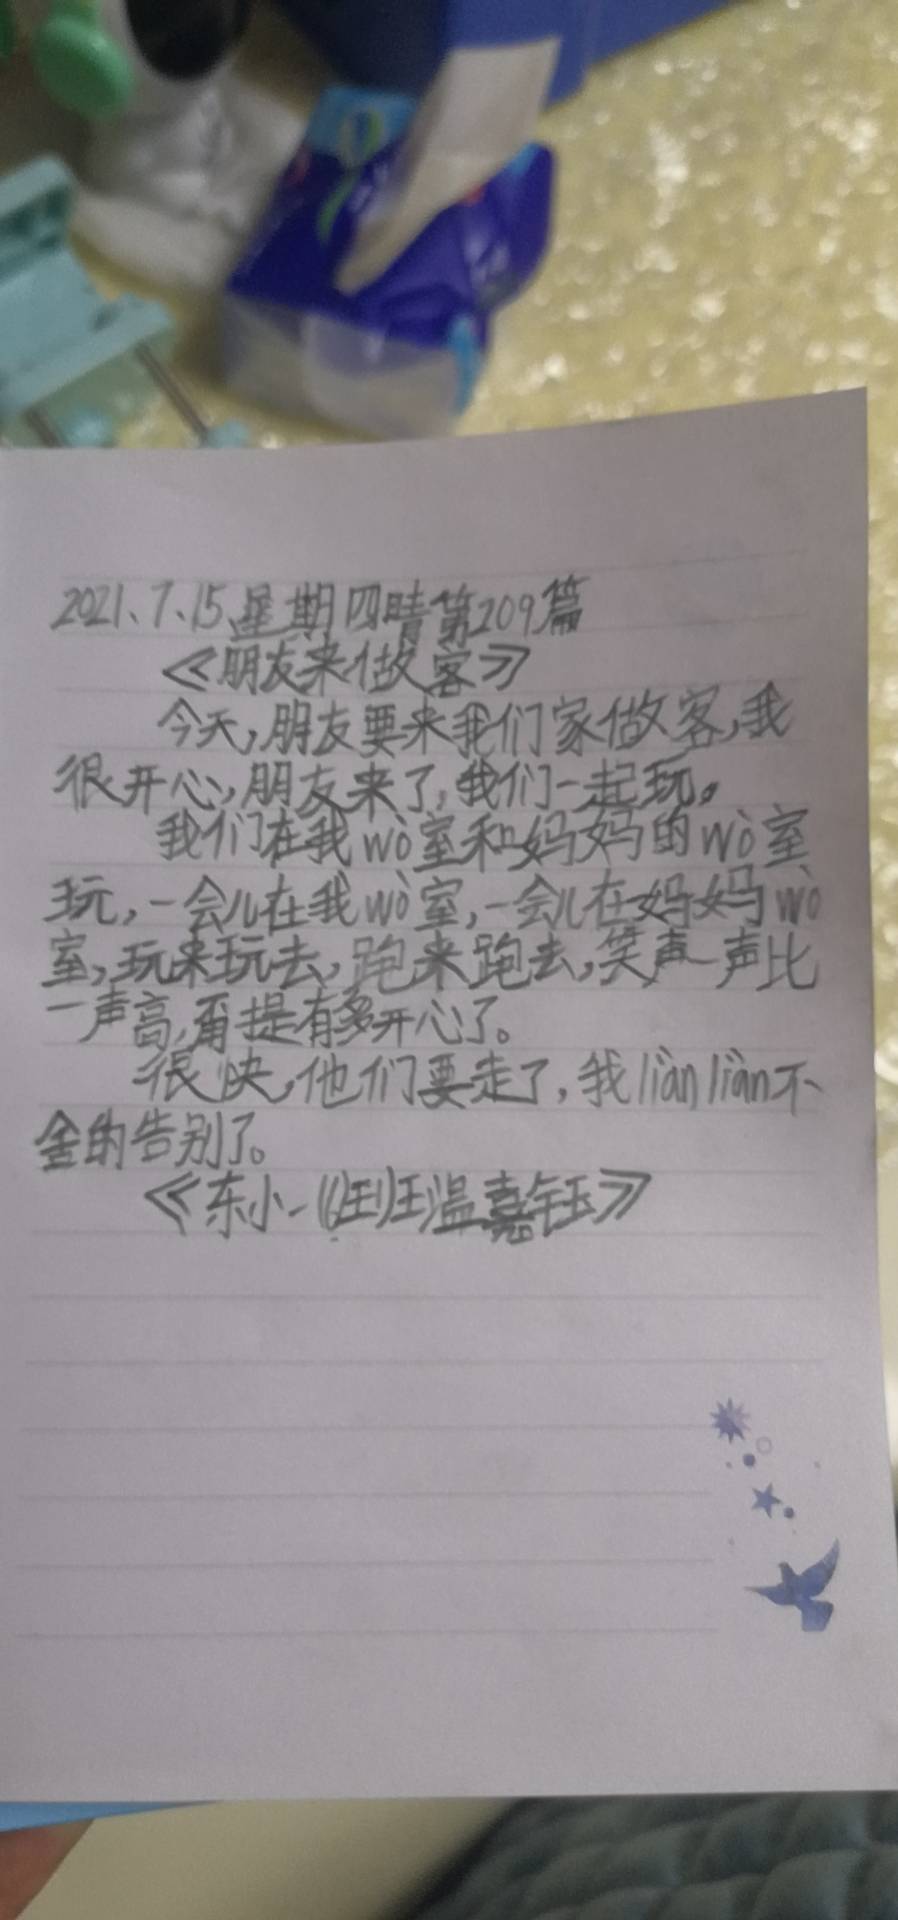 2021、7、15、星期四晴第209篇
《朋友来做客》
今天,朋友要来我们家做客,我
很开心,朋友来了,我们一起玩。
我们在我wò室和妈妈的wò室
玩,一会儿在我wò室,一会儿在妈妈wò
室,玩来玩去,跑来跑去,笑声一声比
一声高,甭提有多开心了。
很快,他们要走了,我liàn liàn不
舍的告别了。
《东小一 温嘉钰》